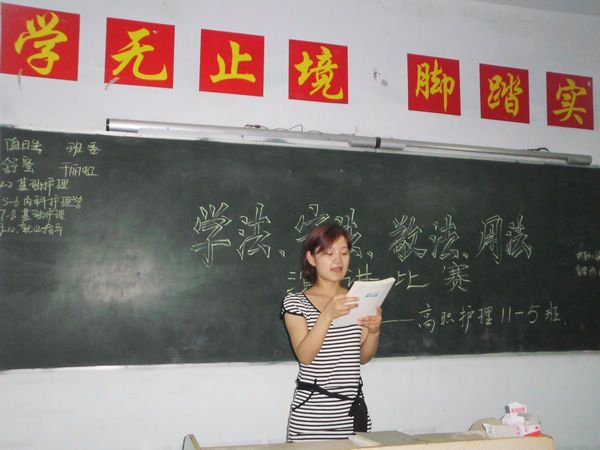 学无止境 脚踏实
值日生 班委
1-2 基础护理
5-6 内科护理学
7-8 基础护理
9-10、就业指导
学法、守法、敬法、用法
演讲比赛
——高职护理11-5班